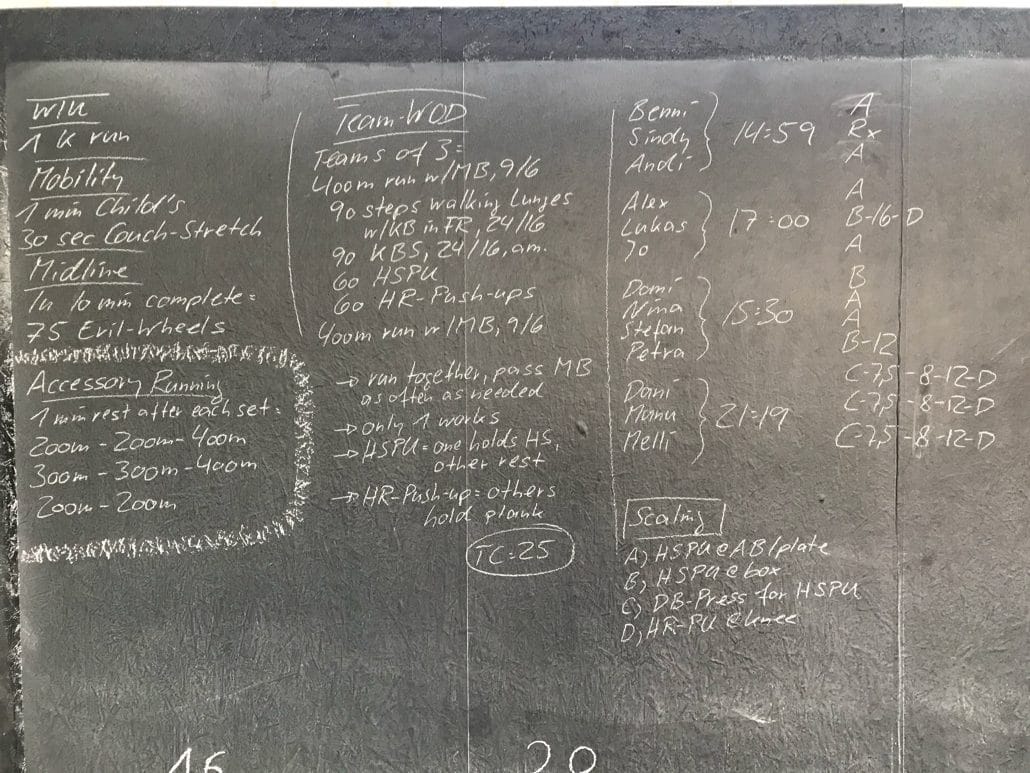 W/U
1 k run
Mobility
1 min Child's
30 sec Couch-Stretch
Midline
In 10 min complete:
75 Evil-Wheels
Accessory Running
1 min rest after each set:
200m - 200m - 400m
300m - 300m - 400m
200m - 200m
Team-WOD
Teams of 3:
400m run w/MB, 9/6
90 steps walking Lunges
w/KB in FR, 24/16
90 KBS, 24/16, am.
60 HSPU
60 HR-Push-ups
400m run w/MB, 9/6
→ run together, pass MB
as often as needed
→ only 1 works
→ HSPU = one holds HS,
other rest
→ HR-Push-up = others
hold plank
TC: 25
Benni A
Sindy } 14:59 Rx
Andi A
Alex A
Lukas } 17:00 B-16-D
Jo A
Domi B
Nina } 15:30 A
Stefan A
Petra B-12
Dani C-7,5-8-12-D
Manu } 21:19 C-7,5-8-12-D
Melli C-7,5-8-12-D
Scaling
A) HSPU @ AB/plate
B) HSPU @ box
C) DB-Press for HSPU
D) HR-PU @ knee
20